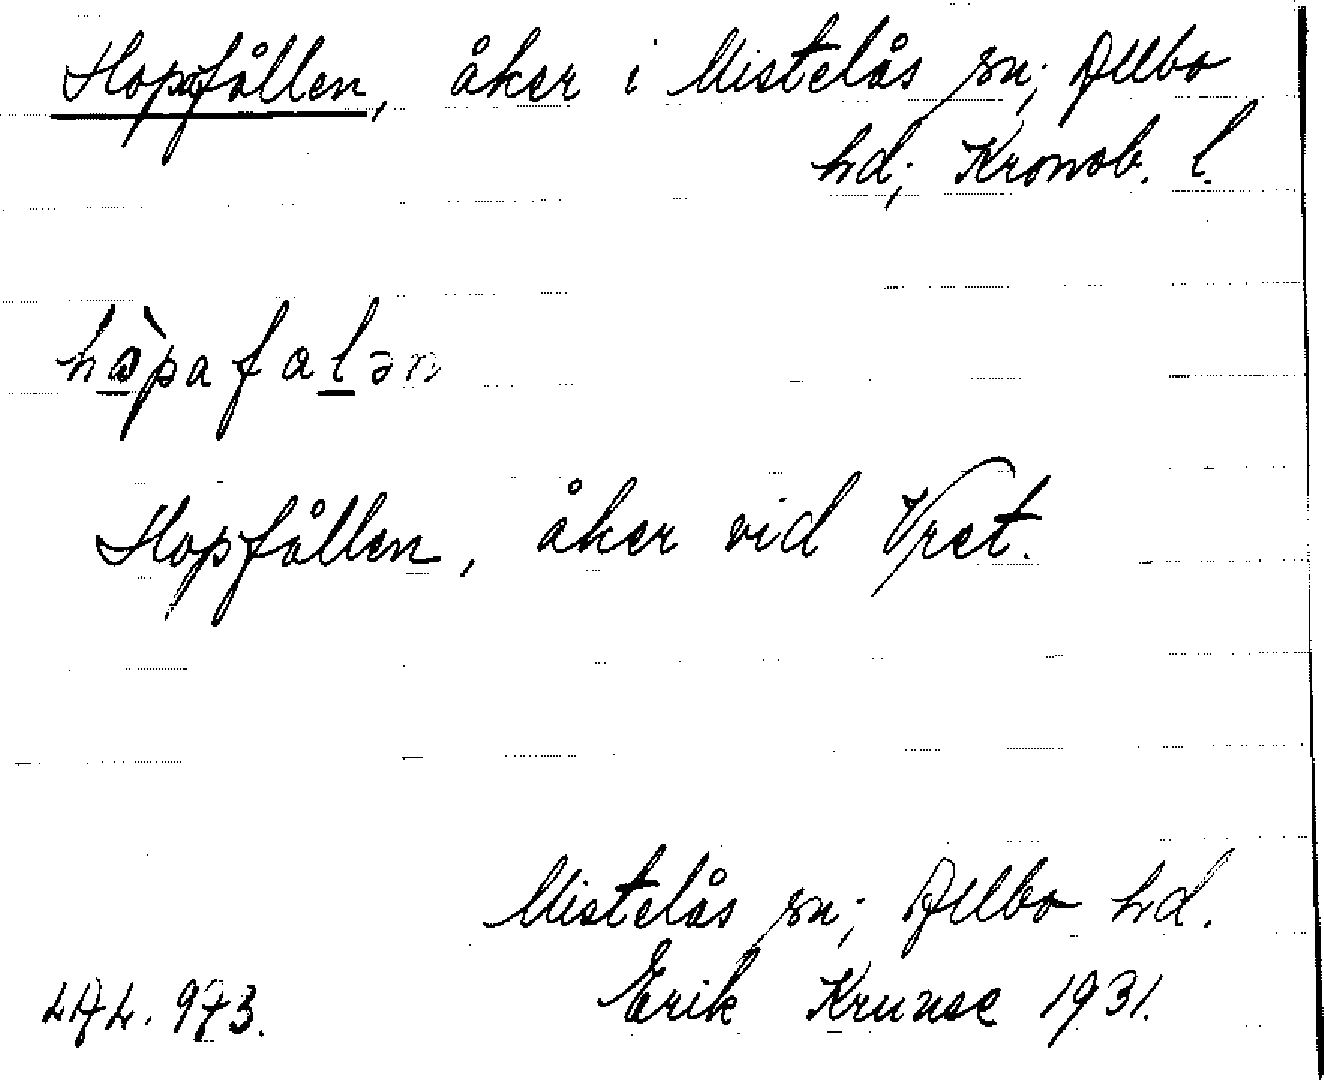 Hopfållen, åker i Mistelås sn; Allbo
hd; Kronob. l.
hòpafalən
Hopfållen, åker vid Vret.
Mistelås sn; Allbo hd.
LAL. 973. Erik Kruuse 1931.